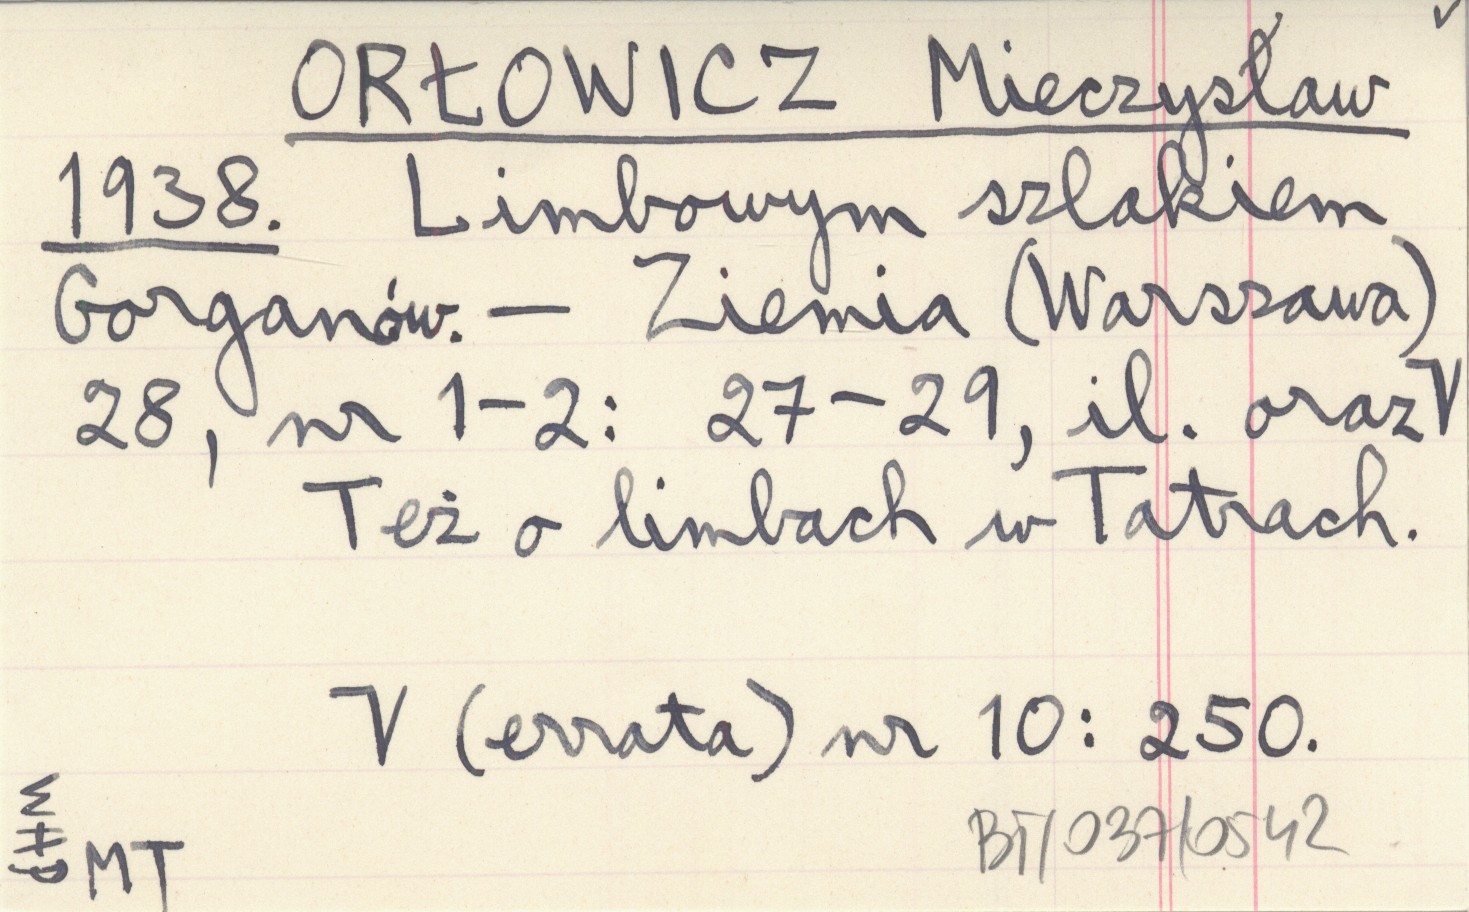 ORŁOWICZ Mieczysław
1938. Limbowym szlakiem
Gorganów. — Ziemia (Warszawa)
28, nr 1-2: 27-29, il. oraz V
Też o limbach w Tatrach.
V (errata) nr 10: 250.
BT/037/0542
WHP
MT